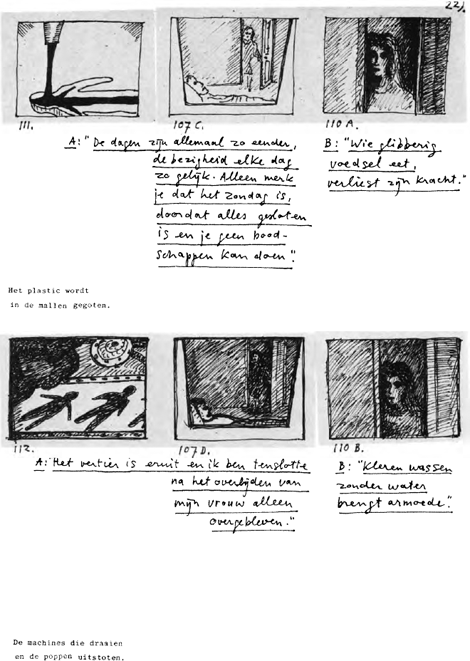 22).
111.
107C.
110A.
A: "De dagen zijn allemaal zo eender,
de bezigheid elke dag
zo gelijk. Alleen merk
je dat het zondag is,
doordat alles gesloten
is en je geen bood-
schappen kan doen."
B: "Wie glibberig
voedsel eet,
verliest zijn kracht."
Het plastic wordt
in de mallen gegoten.
112.
107D.
110 B.
A: "Het vertier is eruit en ik ben tenslotte
na het overlijden van
mijn vrouw alleen
overgebleven."
B: "Kleren wassen
zonder water
brengt armoede."
De machines die draaien
en de poppen uitstoten.